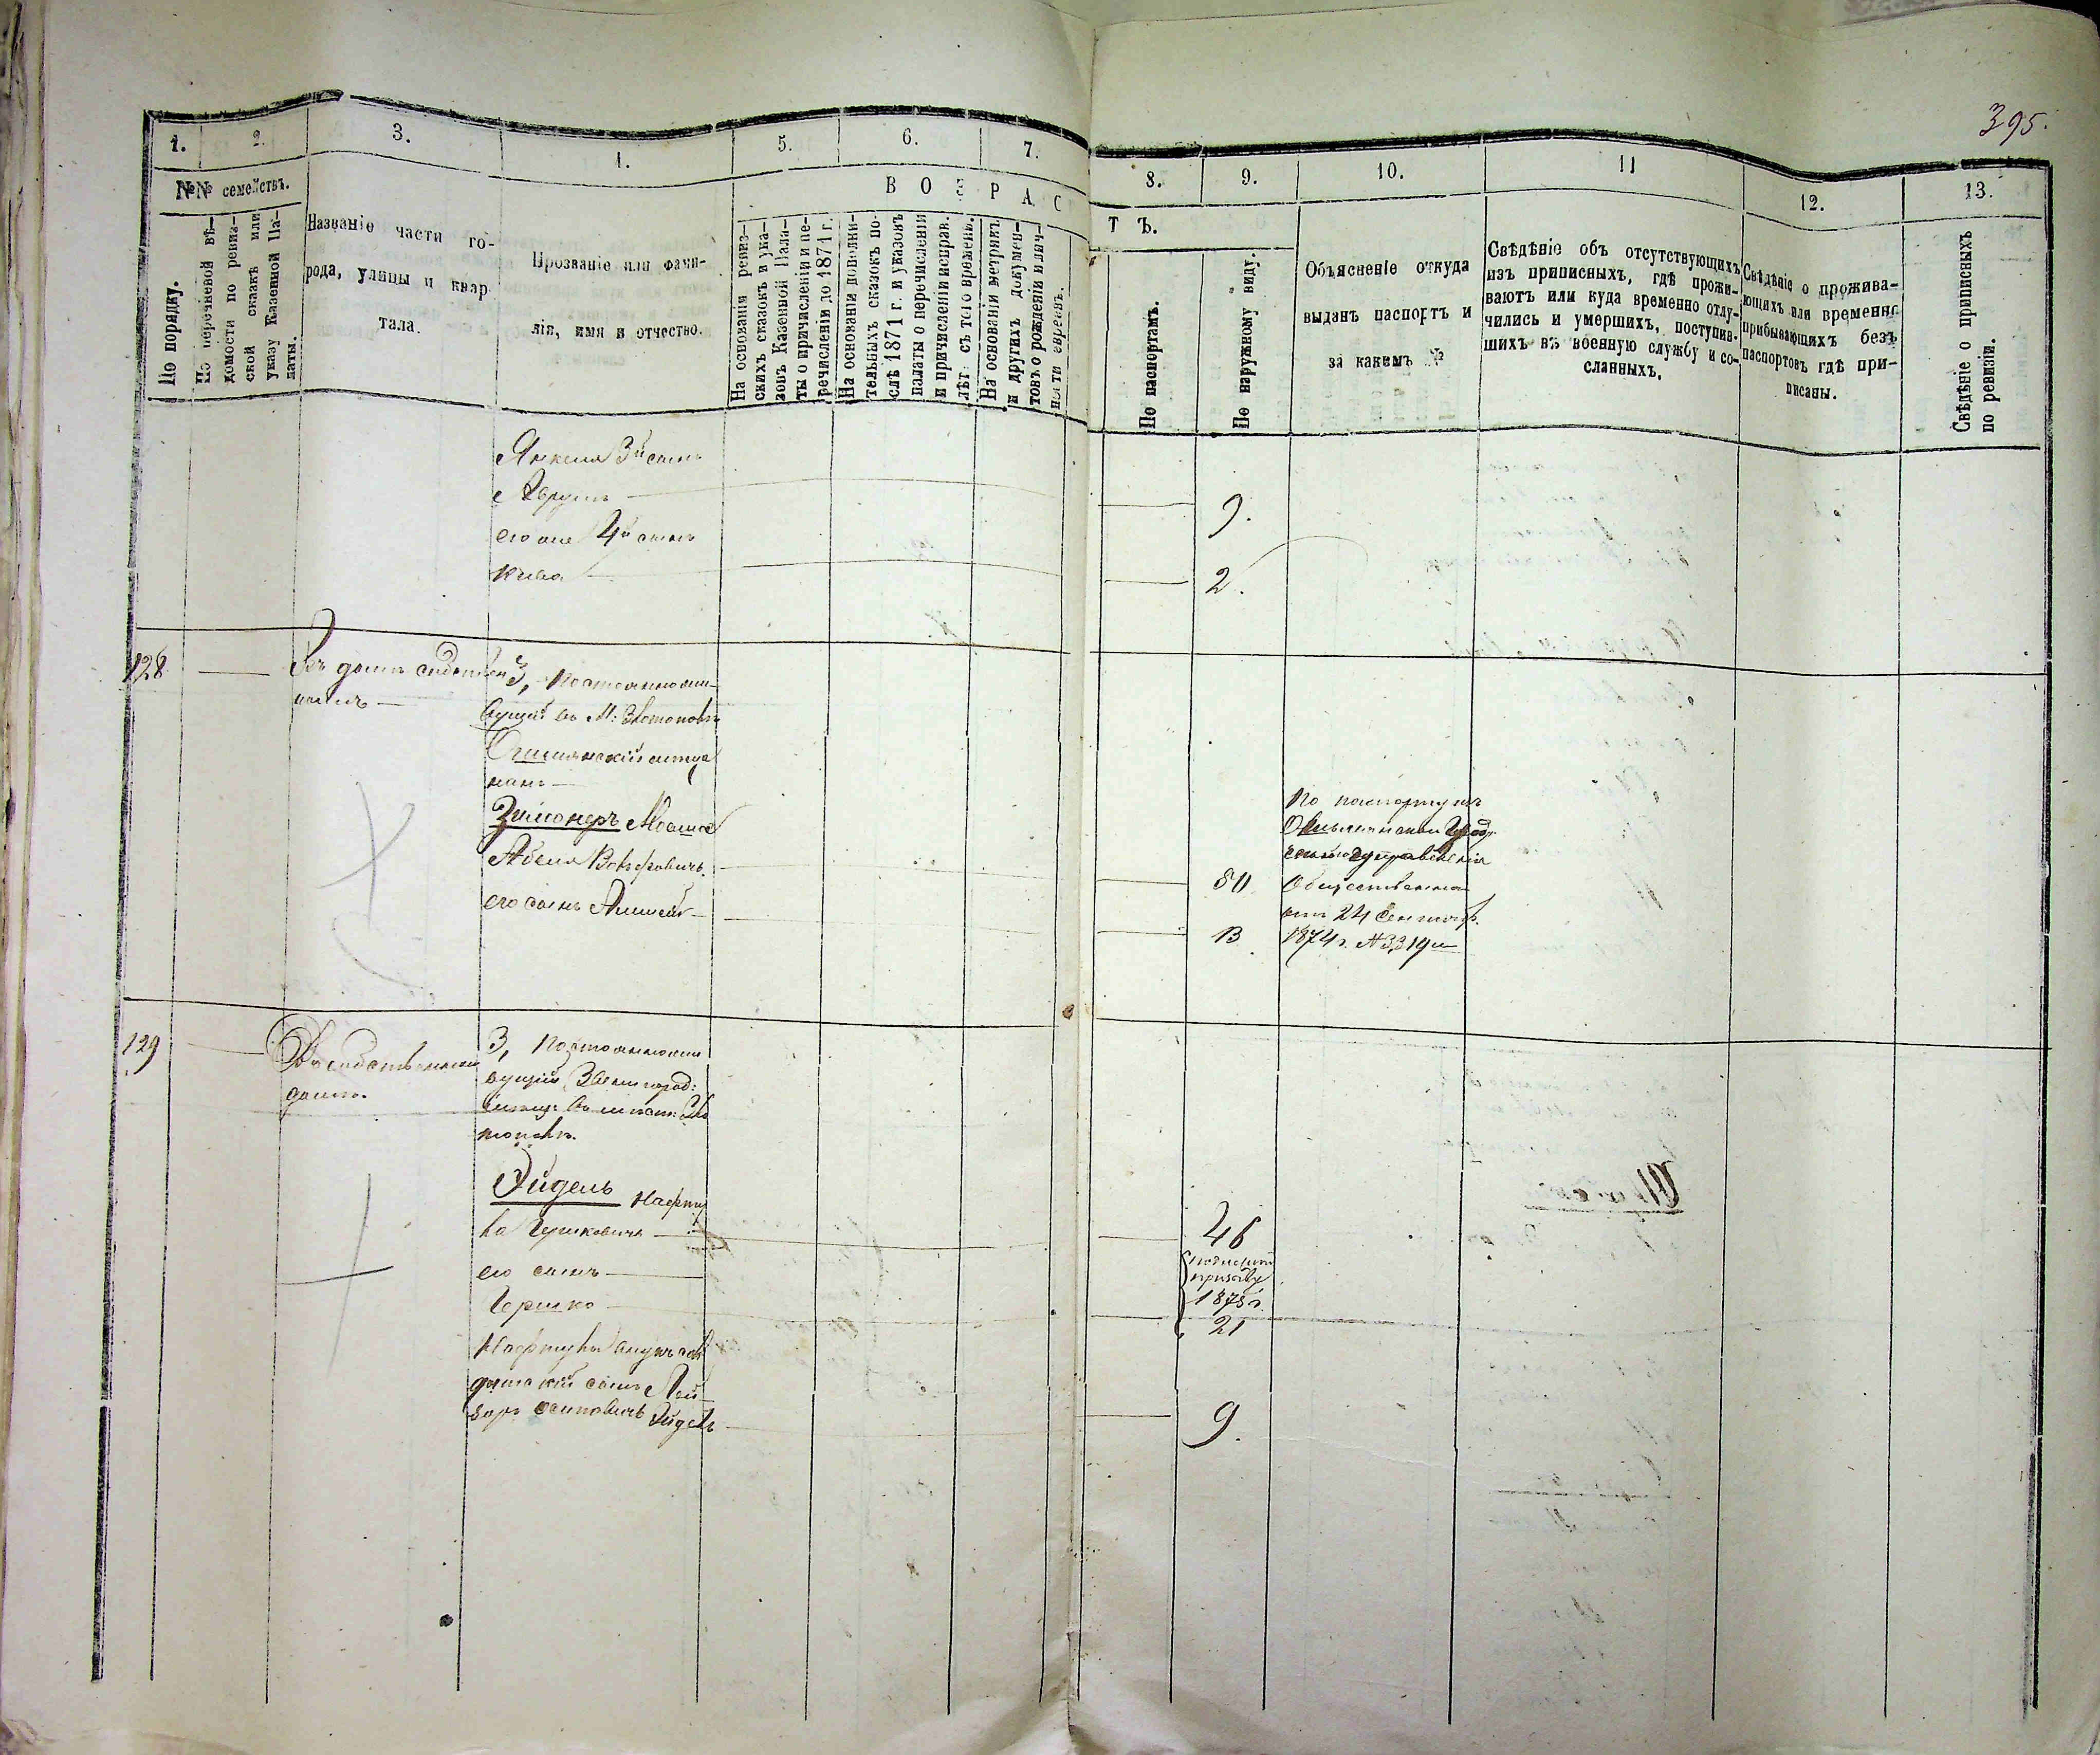 395.
1.
2.
3.
4.
5.
6.
7.
8.
9.
10.
11
12.
13.
№№ семействъ.
По порядку.
По перечневой вѣ-
домости по ревиз-
ской сказкѣ или
указу Казенной Па-
латы.
Названіе части го-
рода, улицы и квар
тала.
Прозваніе или фами-
лія, имя и отчество.
ВОЗРАСТЪ.
На основаніи ревиз-
скихъ сказокъ и ука-
зовъ Казенной Пала-
ты о причисленіи и пе-
речисленіи до 1871 г.
На основаніи дополни-
тельныхъ сказокъ по-
слѣ 1871 г. и указовъ
палаты о перечисленіи
и причисленіи исправ.
лѣт. съ того времень.
На основаніи метрикъ
и другихъ докумен-
товъ о рожденіи и лич-
ности евреевъ.
По паспортамъ.
По наружному виду.
Объясненіе откуда
выданъ паспортъ и
за какимъ №
Свѣдѣніе объ отсутствующихъ
изъ приписныхъ, гдѣ прожи-
ваютъ или куда временно отлу-
чились и умершихъ, поступив-
шихъ въ военную службу и со-
сланныхъ.
Свѣдѣніе о прожива-
ющихъ или временно
прибывающихъ безъ
паспортовъ гдѣ при-
писаны.
Свѣдѣніе о приписныхъ
по ревизіи.
Янкеля 3й сынъ
Аврумъ
9.
его же 4й сынъ
Кива
2.
128
Въ домѣ собствен
номъ
3, Постоянножи-
вущій въ М: Златополѣ
мѣща
нинъ
Мошко
Абель Вольфовичъ
80
его сынъ
13
По паспорту изъ
Общественнаго
отъ 24 Сентябр.
1874 г. № 3319
129
Въ собственномъ
домѣ.
3, Постоянножи
вущій Звенигород:
мѣщ: въ мѣст: Зла
тополѣ.
Эйдель Нафту
ла Гершковичъ
46
его сынъ
Гершко
подлежит
призыву
1875 г.
21
Нафтулы внукъ сол
датскій сынъ Лей
зоръ Осиповичъ Эйдель
9.